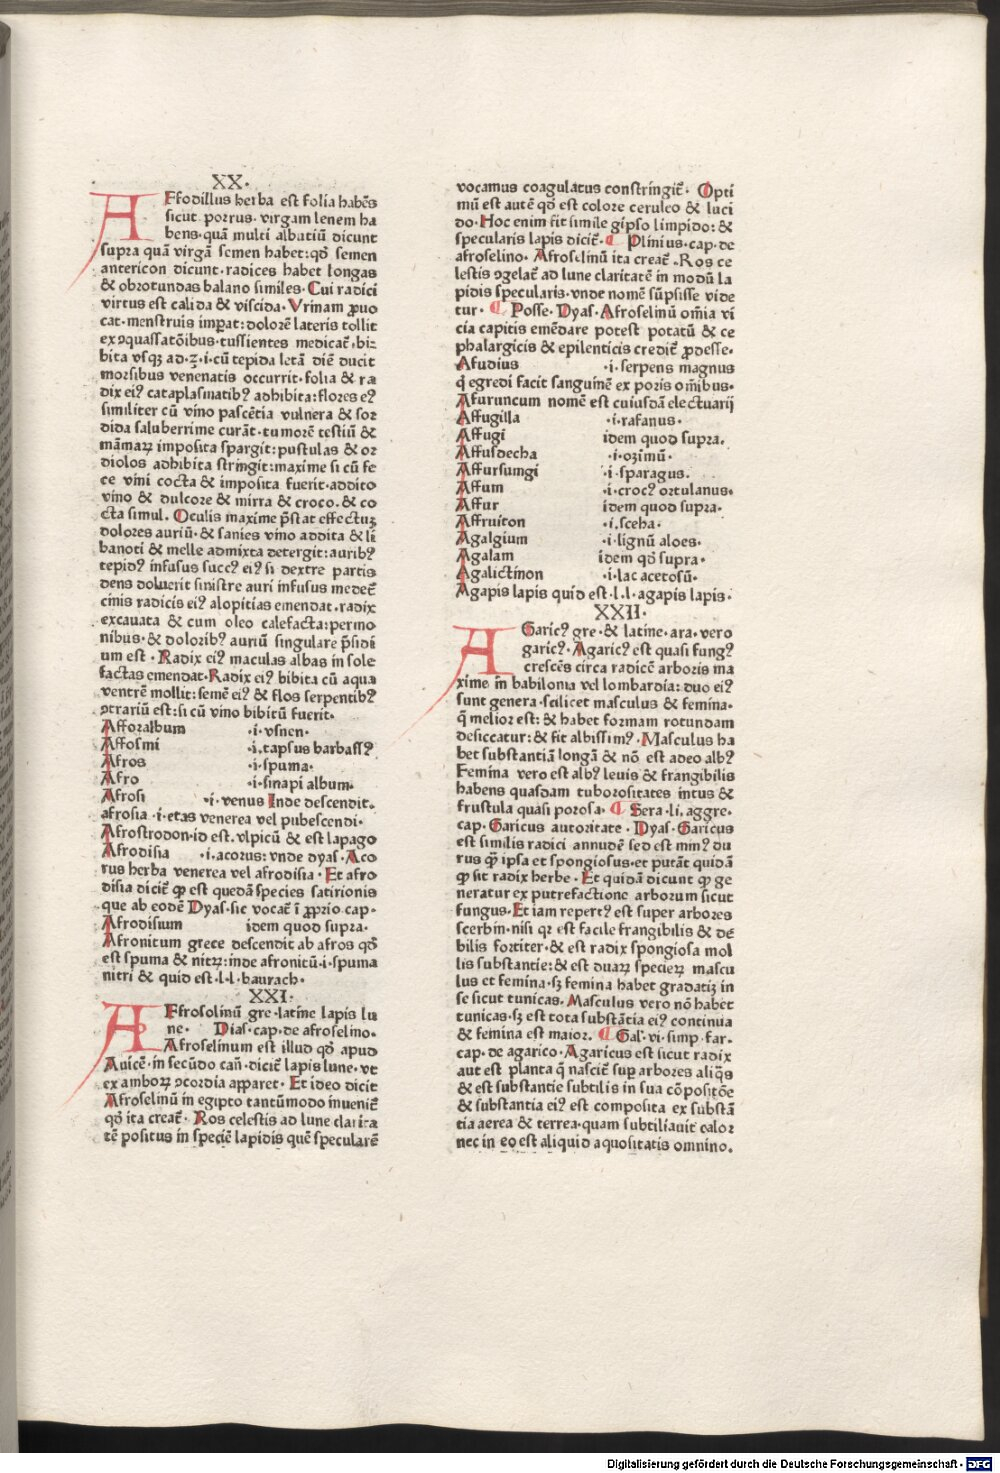 XX.
AFfodillus herba est folia habēs
sicut porrus. virgam lenem ha
bens. quā multi albutiū dicunt
supra quā virgā semen habet: qđ semen
antericon dicunt. radices habet longas
& obrotundas balano similes. Cui radici
virtus est calida & viscida. Vrinam ꝓuo
cat. menstruis imꝑat: dolorē lateris tollit
ex ꝯquassatōibus. tussientes medicat̄. bi-
bita vsqꝫ ad. ʒ. i. cū tepida letā diē ducit
morsibus venenatis occurrit. folia & ra
dix eiꝰ cataplasmatibꝰ adhibita: flores eꝰ
similiter cū vino pascētia vulnera & sor
dida saluberrime curāt. tumorē testiū &
māmaꝝ imposita spargit: pustulas & or
diolos adhibita stringit: maxime si cū fe
ce vini cocta & imposita fuerit. addito
vino & dulcore & mirra & croco. & co
cta simul. Oculis maxime p̄stat effectuꝫ
dolores auriū. & sanies vino addita & li
banoti & melle admixta detergit: auribꝰ
tepidꝰ infusus succꝰ eiꝰ si dextre partis
dens doluerit sinistre auri infusus medet̄
cinis radicis eiꝰ alopitias emendat. radix
excauata & cum oleo calefacta: permo
nibus. & doloribꝰ auriū singulare p̄sidi
um est. Radix eiꝰ maculas albas in sole
factas emendat. Radix eiꝰ bibita cū aqua
ventrē mollit: semē eiꝰ & flos serpentibꝰ
ꝯtrariū est: si cū vino bibitū fuerit.
Afforalbum .i. vsnen.
Affosmi .i. tapsus barbassꝰ
Afros .i. spuma.
Afro .i. sinapi album.
Afrosi .i. venus Inde descendit.
afrosia .i. etas venerea vel pubescendi.
Afrostrodon. id est. vlpicū & est lapago
Afrodisia .i. acorus: vnde dyas. Aco
rus herba venerea vel afrodisia. Et afro
disia dicit̄ ꝙ est quedā species satirionis
que ab eodē Dyas. sic vocat̄ ī ꝓprio cap.
Afrodisium idem quod supra.
Afronitum grece descendit ab afros qđ
est spuma & nitꝝ: inde afronitū. i. spuma
nitri & quid est. l. l. baurach.
XXI.
AFfrosolinū gre. latine lapis lu
ne. Dias. cap. de afroselino.
Afroselinum est illud qđ apud
Auicē. in secūdo can̄. dicit̄ lapis lune. vt
ex amboꝝ ꝯcordia apparet. Et ideo dicit
Afroselinū in egipto tantūmodo inuenit̄
qđ ita creat̄. Ros celestis ad lune clarita
tē positus in speciē lapidis quē specularē
vocamus coagulatus constringit̄. Opti
mū est autē qđ est colore ceruleo & luci
do. Hoc enim fit simile gipso limpido: &
specularis lapis dicit̄. ¶ Plinius. cap. de
afroselino. Afroselinū ita creat̄. Ros ce
lestis ꝯgelat̄ ad lune claritatē in modū la
pidis specularis. vnde nomē sūpsisse vide
tur. ¶ Posse. Dyas. Afroselinū om̄ia vi
cia capitis emēdare potest potatū & ce
phalargicis & epilenticis credit̄ ꝓdesse.
Afudius .i. serpens magnus
q̄ egredi facit sanguinē ex poris om̄ibus.
Afuruncum nomē est cuiusdā electuarij
Affugilla .i. rafanus.
Affugi idem quod supra.
Affusdecha .i. ozimū.
Affursumgi .i. sparagus.
Affum .i. crocꝰ ortulanus.
Affur idem quod supra.
Affruiton .i. sceba.
Agalgium .i. lignū aloes.
Agalam idem qđ supra.
Agalictinon .i. lac acetosū.
Agapis lapis quid est. l. l. agapis lapis.
XXII.
AGaricꝰ gre. & latine. ara. vero
garicꝰ. Agaricꝰ est quasi fungꝰ
crescēs circa radicē arboris ma
xime in̄ babilonia vel lombardia: duo eiꝰ
sunt genera. scilicet masculus & femina.
q̄ melior est: & habet formam rotundam
desiccatur: & fit albissimꝰ. Masculus ha
bet substantiā longā & nō est adeo albꝰ
Femina vero est albꝰ leuis & frangibilis
habens quasdam tuborositates intus &
frustula quasi porosa. ¶ Sera. li. aggre.
cap. Garicus autoritate. Dyas. Garicus
est similis radici annudē sed est minꝰ du
rus ꝙ̄ ipsa et spongiosus. et putāt quidā
ꝙ sit radix herbe. Et quidā dicunt ꝙ ge
neratur ex putrefactione arborum sicut
fungus. Et iam repertꝰ est super arbores
scerbin. nisi qr est facile frangibilis & de
bilis fortiter. & est radix spongiosa mol
lis substantie: & est duaꝝ specieꝝ mascu
lus et femina. sꝫ femina habet gradatiꝫ in
se sicut tunicas. Masculus vero nō habet
tunicas. sꝫ est tota substātia eiꝰ continua
& femina est maior. ¶ Gal. vi. simp. far.
cap. de agarico. Agaricus est sicut radix
aut est planta q̄ nascit̄ suꝑ arbores aliq̄s
& est substantie subtilis in sua cōpositōe
& substantia eiꝰ est composita ex substā
tia aerea & terrea. quam subtiliauit calor
nec in eo est aliquid aquositatis omnino.
Digitalisierung gefördert durch die Deutsche Forschungsgemeinschaft - DFG